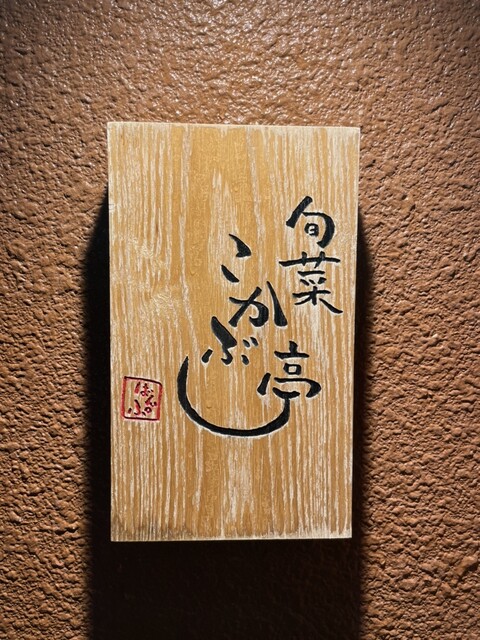 旬菜
こかぶ
亭